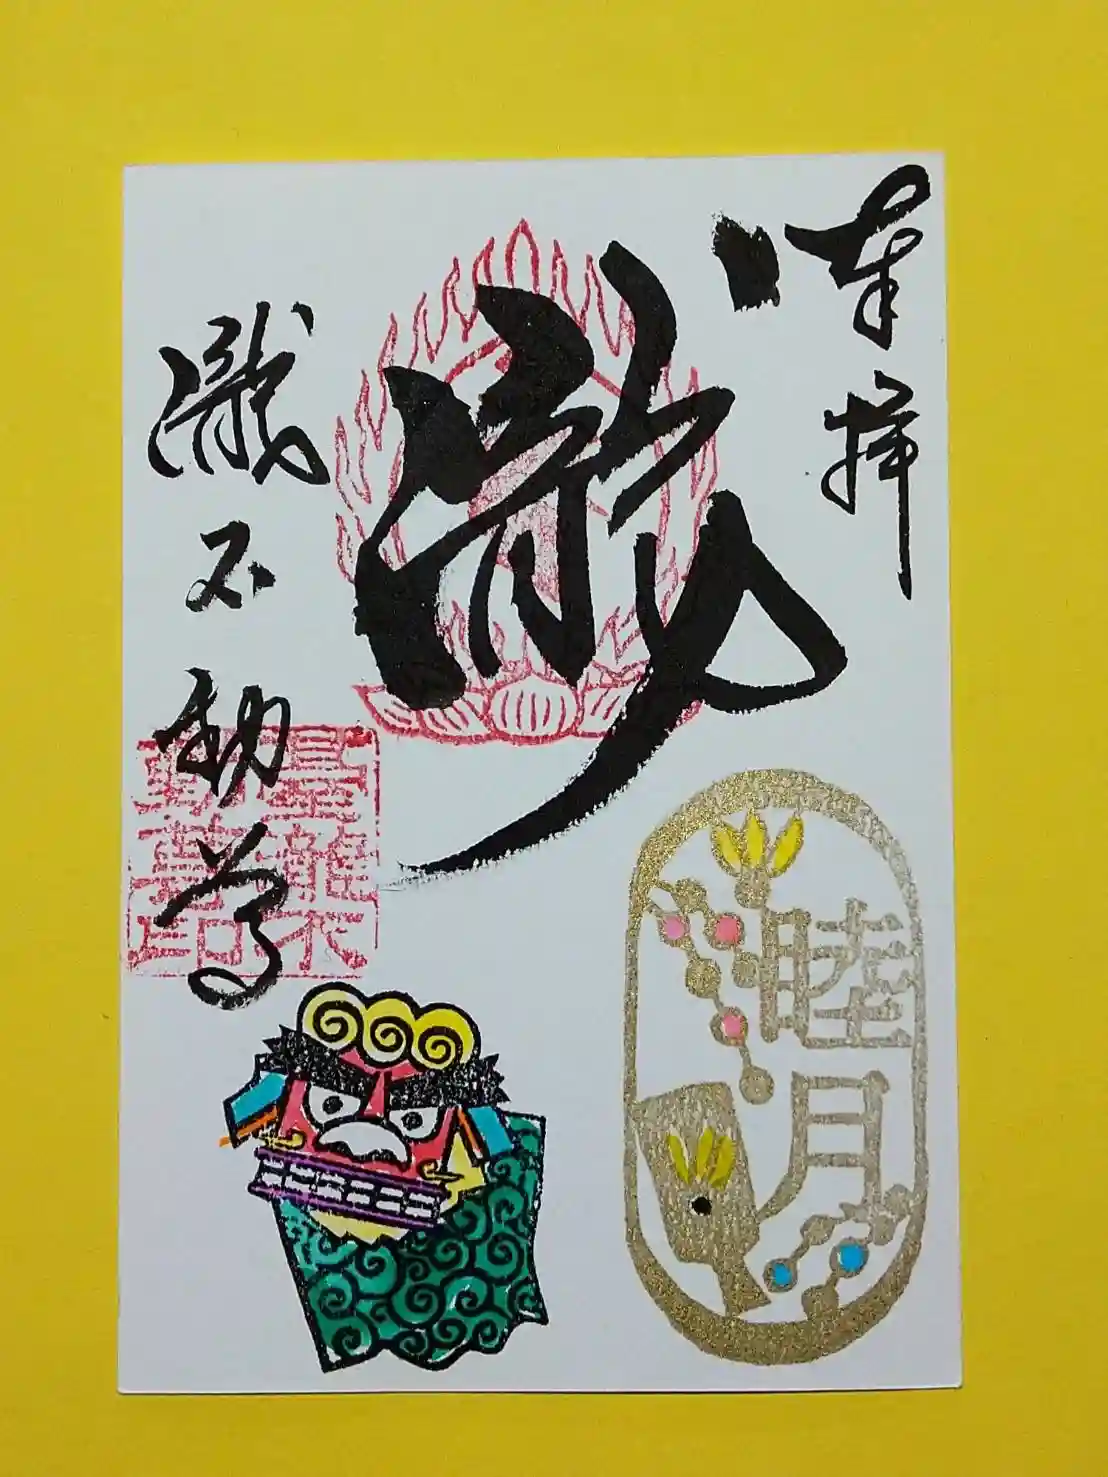 奉拝
瀧
瀧不動尊
睦月